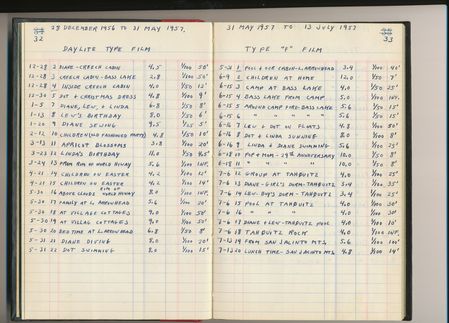 28 DECEMBER 1956 TO 31 MAY 1957.
32
DAYLITE TYPE FILM
12-28 2 DIANE - CREECH CABIN 4.5 1/100 50'
12-28 3 CREECH CABIN - BASS LAKE 2.8 1/100 50'
12-28 4 INSIDE CREECH CABIN 4.0 1/50 12'
12-28 5 DOT + CHRISTMAS DRESS 4.8 1/100 9'
1-5 7 DIANE, LEW, + LINDA 6.8 1/50 8'
1-13 8 LEW'S BIRTHDAY 8.0 1/50 6'
1-20 9 DIANE SEWING 9.5 1/25 5'
2-12 10 CHILDREN (OLD FASHIONED PARTY) 4.8 1/50 10'
3-13 11 APRICOT BLOSSOMS 3.8 1/100 20'
3-23 12 LINDA'S BIRTHDAY 11.0 1/50 4.5'
3-24 13 FROM RIM OF WORLD HIWAY 5.6 1/100 INF.
4-21 14 CHILDREN ON EASTER 4.2 1/100 12'
4-21 15 CHILDREN ON EASTER 4.2 1/100 14'
5-30 16 ABOVE CLOUDS RIM OF WORLD HIWAY 8.0 1/100 INF.
5-30 17 FAMILY AT L. ARROWHEAD 5.6 1/100 30'
5-30 18 AT VILLAGE COTTAGES 4.0 1/100 50'
5-30 19 AT VILLAG COTTAGES 4.0 1/100 50'
5-30 20 BED TIME AT L. ARROWHEAD 6.8 1/50 8'
5-31 21 DIANE DIVING 8.0 1/100 20'
5-31 22 DOT SWIMMING 8.0 1/100 15'
31 MAY 1957 TO 13 JULY 1957
33
TYPE "F" FILM
5-31 1 POOL + FOR CABIN - L. ARROWHEAD 3.4 1/100 40'
6-9 2 CHILDREN AT HOME 12.0 1/50 7'
6-15 3 CAMP AT BASS LAKE 4.0 1/50 25'
6-15 4 BASS LAKE FROM CAMP 5.0 1/100 INF.
6-15 5 AROUND CAMP FIRE - BASS LAKE 5.6 1/50 15'
6-15 6 " " " " " 5.6 1/50 15'
6-16 7 LEW + DOT ON FLOATS 4.8 1/100 50'
6-16 8 DOT + LINDA SUNNING 8.0 1/100 8'
6-16 9 LINDA + DIANE SWIMMING 5.6 1/100 25'
6-18 10 POP + MOM - 29TH ANNIVERSARY 10.0 1/50 8'
6-18 11 " " " 10.0 1/50 8'
7-6 12 GROUP AT TAHQUITZ 4.0 1/100 30'
7-6 13 DIANE - GIRL'S DORM - TAHQUITZ 3.4 1/100 35'
7-6 14 LEW - BOY'S DORM - TAHQUITZ 3.4 1/100 25'
7-6 15 POOL AT TAHQUITZ 4.0 1/100 30'
7-6 16 " " " 4.0 1/100 30'
7-6 17 DIANE + LEW - TAHQUITZ POOL 4.0 1/100 10'
7-6 18 TAHQUITZ ROCK 4.0 1/100 INF.
7-13 19 FROM SAN JACINTO MTS. 5.6 1/100 100'
7-13 20 LUNCH TIME - SAN JACINTO MTS. 4.8 1/100 14'